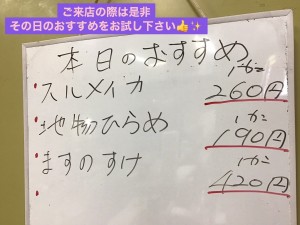 ご来店の際は是非
その日のおすすめをお試し下さい👍✨
本日のおすすめ
・スルメイカ 1カン 260円
・地物ひらめ 1カン 190円
・ますのすけ 1カン 420円
・